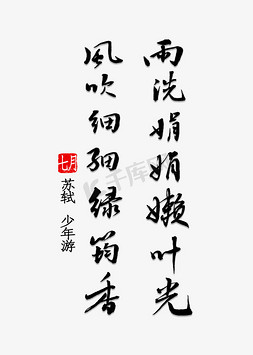 雨洗娟娟嫩叶光
風吹细细绿筠香
七月
苏轼 少年游